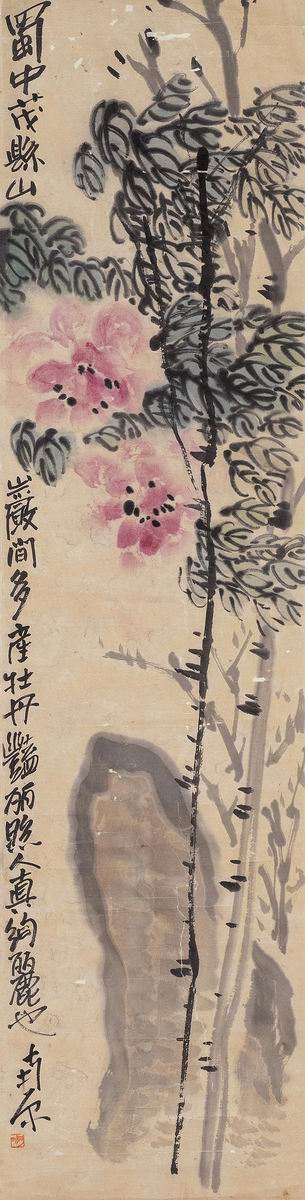 蜀中茂縣山
巖間多產牡丹豔麗照人真絢麗也